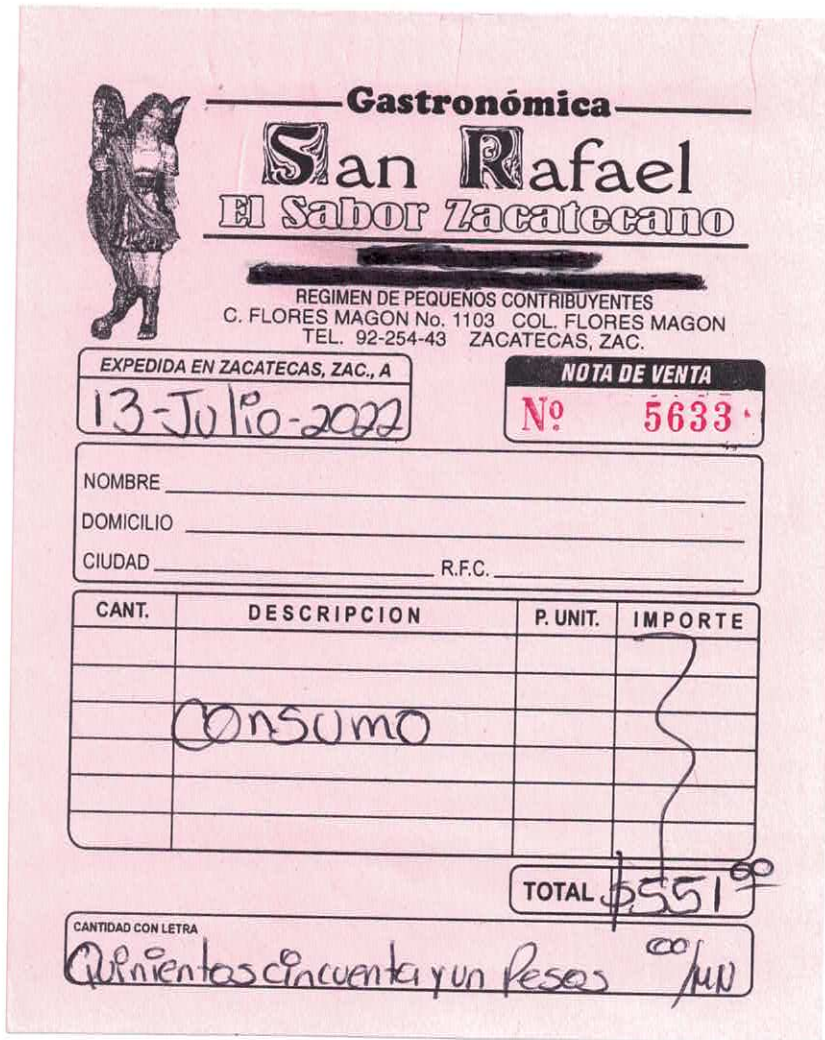 Gastronómica
San Rafael
El Sabor Zacatecano
REGIMEN DE PEQUEÑOS CONTRIBUYENTES
C. FLORES MAGON No. 1103 COL. FLORES MAGON
TEL. 92-254-43 ZACATECAS, ZAC.
EXPEDIDA EN ZACATECAS, ZAC., A
13-Julio-2022
NOTA DE VENTA
Nº 5633
NOMBRE
DOMICILIO
CIUDAD R.F.C.
CANT. DESCRIPCION P. UNIT. IMPORTE
consumo
TOTAL $551 00
CANTIDAD CON LETRA
Quinientos cincuenta y un Pesos 00/MN